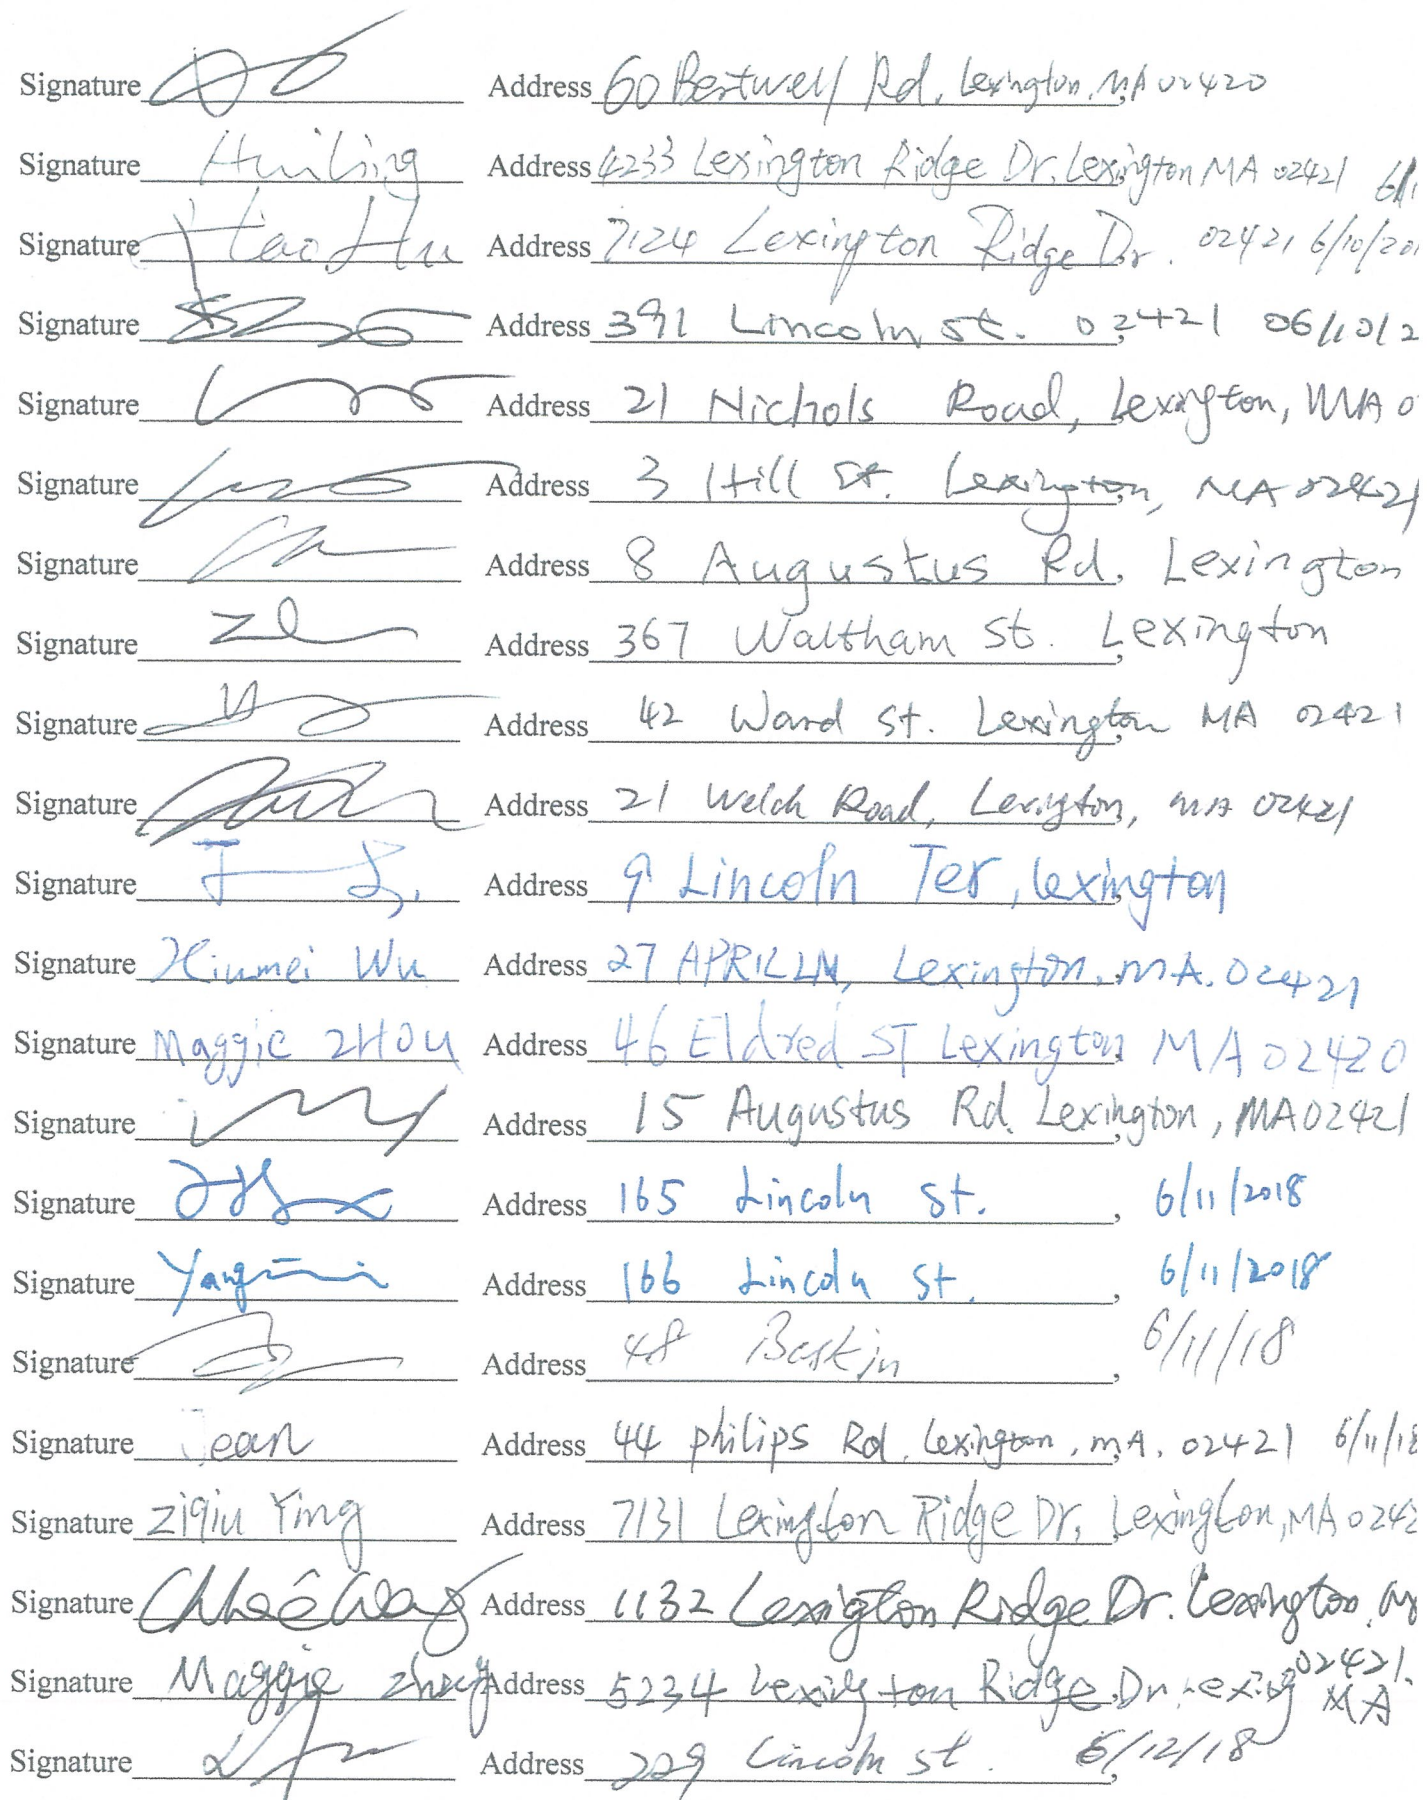 Signature Address 60 Bestwell Rd, Lexington, MA 02420
Signature Huiling Address 4233 Lexington Ridge Dr. Lexington MA 02421
Signature Hao Hu Address 7124 Lexington Ridge Dr. 02421 6/10/201
Signature Address 391 Lincoln st. 02421 06/10/2
Signature Address 21 Nichols Road, Lexington, MA 0
Signature Address 3 Hill St. Lexington, MA 02421
Signature Address 8 Augustus Rd, Lexington
Signature Address 367 Waltham St. Lexington
Signature Address 42 Ward St. Lexington MA 02421
Signature Address 21 Welch Road, Lexington, MA 02421
Signature Address 9 Lincoln Ter, lexington
Signature Xiumei Wu Address 27 APRIL LN, Lexington, MA. 02421
Signature Maggie ZHOU Address 46 Eldred ST Lexington MA 02420
Signature Address 15 Augustus Rd. Lexington, MA 02421
Signature Address 165 Lincoln St. , 6/11/2018
Signature Yang Address 166 Lincoln St. , 6/11/2018
Signature Address 48 Baskin , 6/11/18
Signature Jean Address 44 philips Rd. Lexington, MA. 02421 6/11/18
Signature Ziqiu Ying Address 7131 Lexington Ridge Dr, Lexington, MA 0242
Signature Chloe Wang Address 1132 Lexington Ridge Dr. Lexington,
Signature Maggie Zhang Address 5234 Lexington Ridge Dr. Lexing 02421. MA
Signature Address 229 Lincoln st. 6/12/18